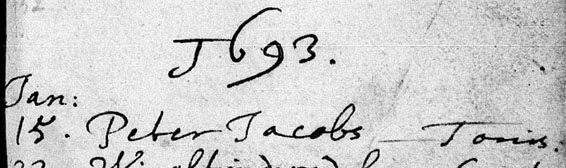 1693.
Jan:
15. Peter Jacobs — Tonis.